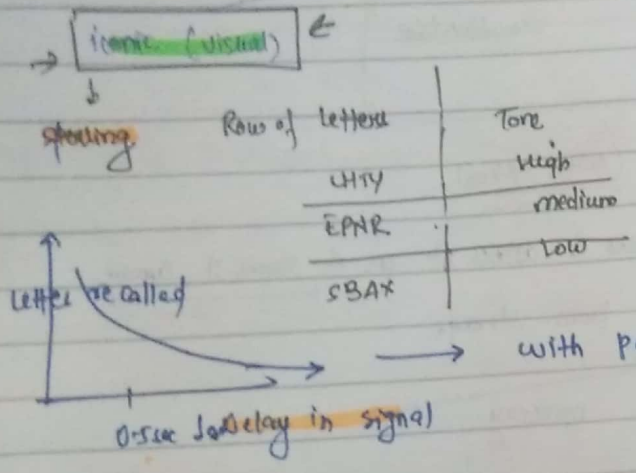 iconic (visual)
sperling
Row of Letters Tone
LHTY High
EPNR medium
SBAX Low
Letter recalled
with P
0.5sec Delay in signal